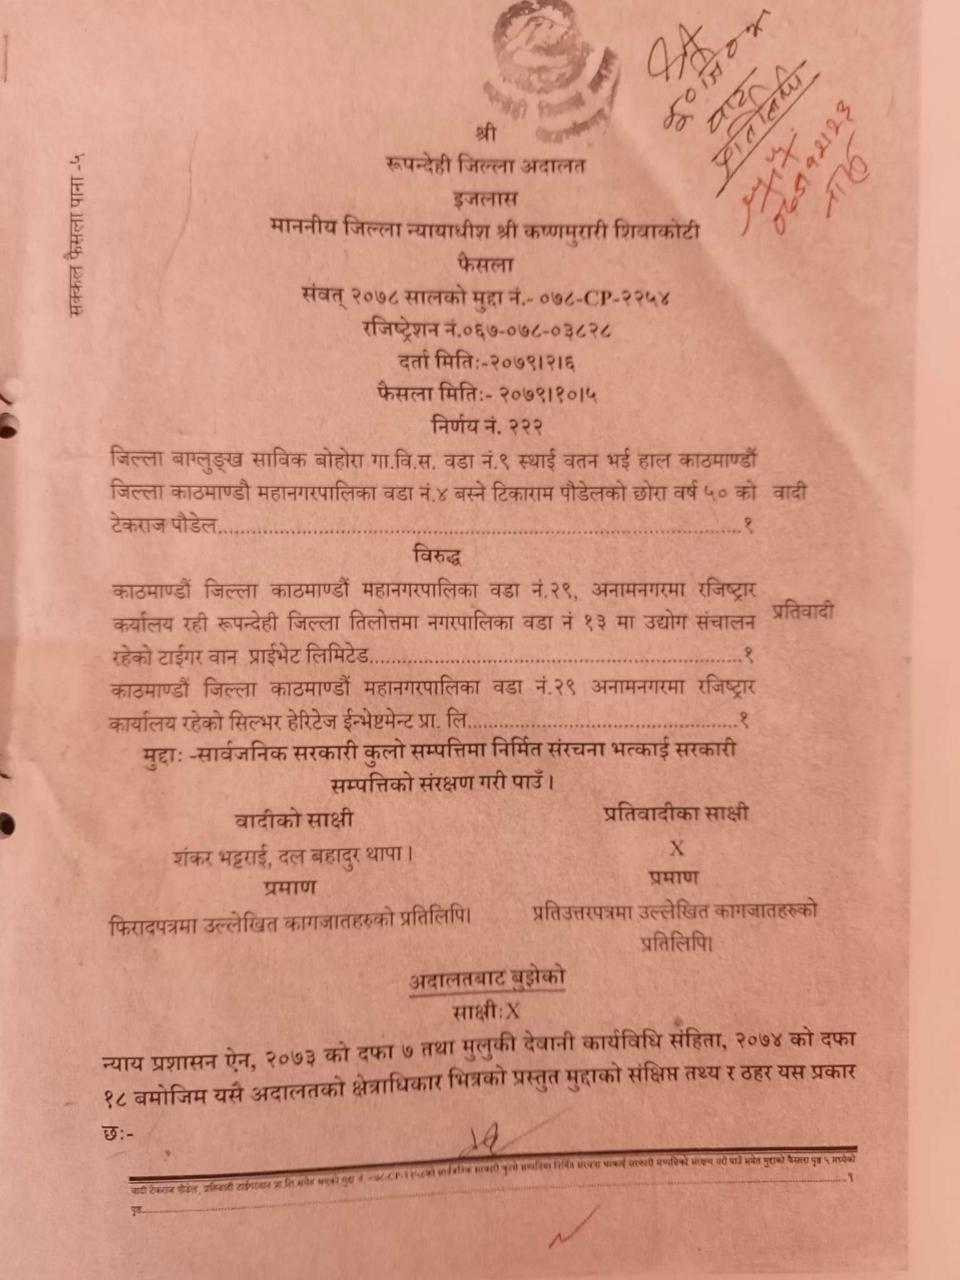 सक्कल फैसला पाना -५
प्रतिलिपि
श्री
रूपन्देही जिल्ला अदालत
इजलास
माननीय जिल्ला न्यायाधीश श्री कष्णमुरारी शिवाकोटी
फैसला
संवत् २०७८ सालको मुद्दा नं.- ०७८-CP-२२५४
रजिष्ट्रेशन नं.०६७-०७८-०३८२८
दर्ता मितिः-२०७९।२।६
फैसला मितिः- २०७९।१०।५
निर्णय नं. २२२
जिल्ला बाग्लुङ्ख साविक बोहोरा गा.वि.स. वडा नं.९ स्थाई वतन भई हाल काठमाण्डौं
जिल्ला काठमाण्डौ महानगरपालिका वडा नं.४ बस्ने टिकाराम पौडेलको छोरा वर्ष ५० को वादी
टेकराज पौडेल.....................................................................................१
विरुद्ध
काठमाण्डौं जिल्ला काठमाण्डौं महानगरपालिका वडा नं.२९, अनामनगरमा रजिष्ट्रार
कर्यालय रही रूपन्देही जिल्ला तिलोत्तमा नगरपालिका वडा नं १३ मा उद्योग संचालन प्रतिवादी
रहेको टाईगर वान प्राईभेट लिमिटेड............................................................१
काठमाण्डौं जिल्ला काठमाण्डौं महानगरपालिका वडा नं.२९ अनामनगरमा रजिष्ट्रार
कार्यालय रहेको सिल्भर हेरिटेज ईन्भेष्टमेन्ट प्रा. लि...........................................१
मुद्दाः -सार्वजनिक सरकारी कुलो सम्पत्तिमा निर्मित संरचना भत्काई सरकारी
सम्पत्तिको संरक्षण गरी पाउँ।
वादीको साक्षी प्रतिवादीका साक्षी
शंकर भट्टराई, दल बहादुर थापा। X
प्रमाण प्रमाण
फिरादपत्रमा उल्लेखित कागजातहरुको प्रतिलिपि। प्रतिउत्तरपत्रमा उल्लेखित कागजातहरुको
प्रतिलिपि।
अदालतबाट बुझेको
साक्षीःX
न्याय प्रशासन ऐन, २०७३ को दफा ७ तथा मुलुकी देवानी कार्यविधि संहिता, २०७४ को दफा
१८ बमोजिम यसै अदालतको क्षेत्राधिकार भित्रको प्रस्तुत मुद्दाको संक्षिप्त तथ्य र ठहर यस प्रकार
छः-